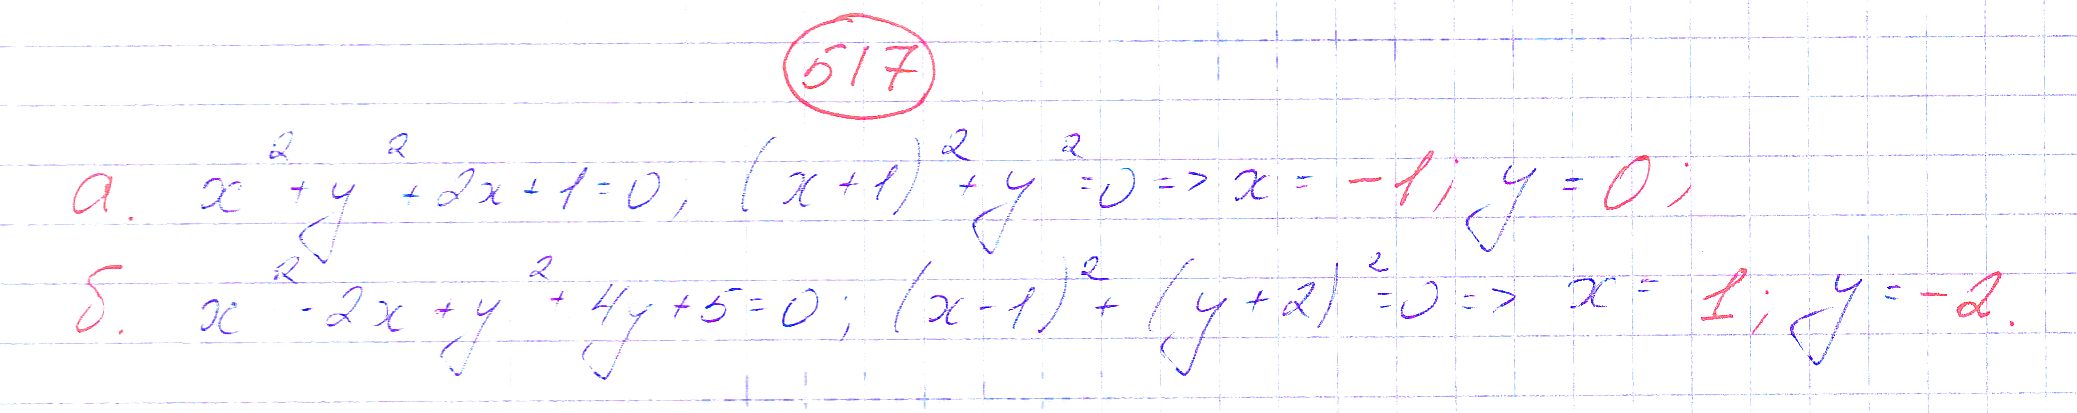 517
а. x²+y²+2x+1=0; (x+1)²+y²=0=>x=-1; y=0;
б. x²-2x+y²+4y+5=0; (x-1)²+(y+2)²=0=> x=1; y=-2.